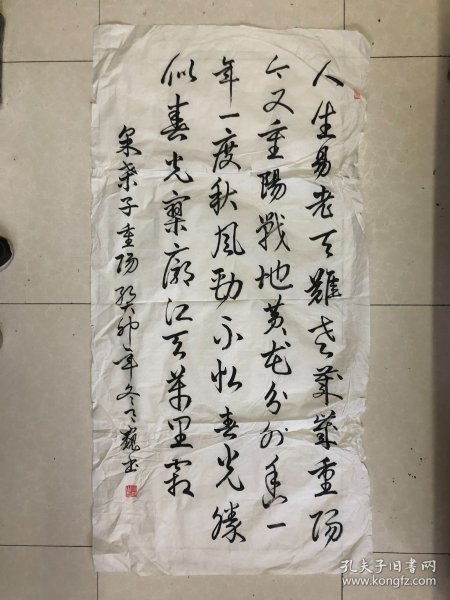 人生易老天难老岁岁重阳
今又重陽戰地黄花分外香一
年一度秋风劲不似春光勝
似春光寥廓江天萬里霜
采桑子重阳癸卯年冬之巍书
孔夫子旧书网
www.kongfz.com